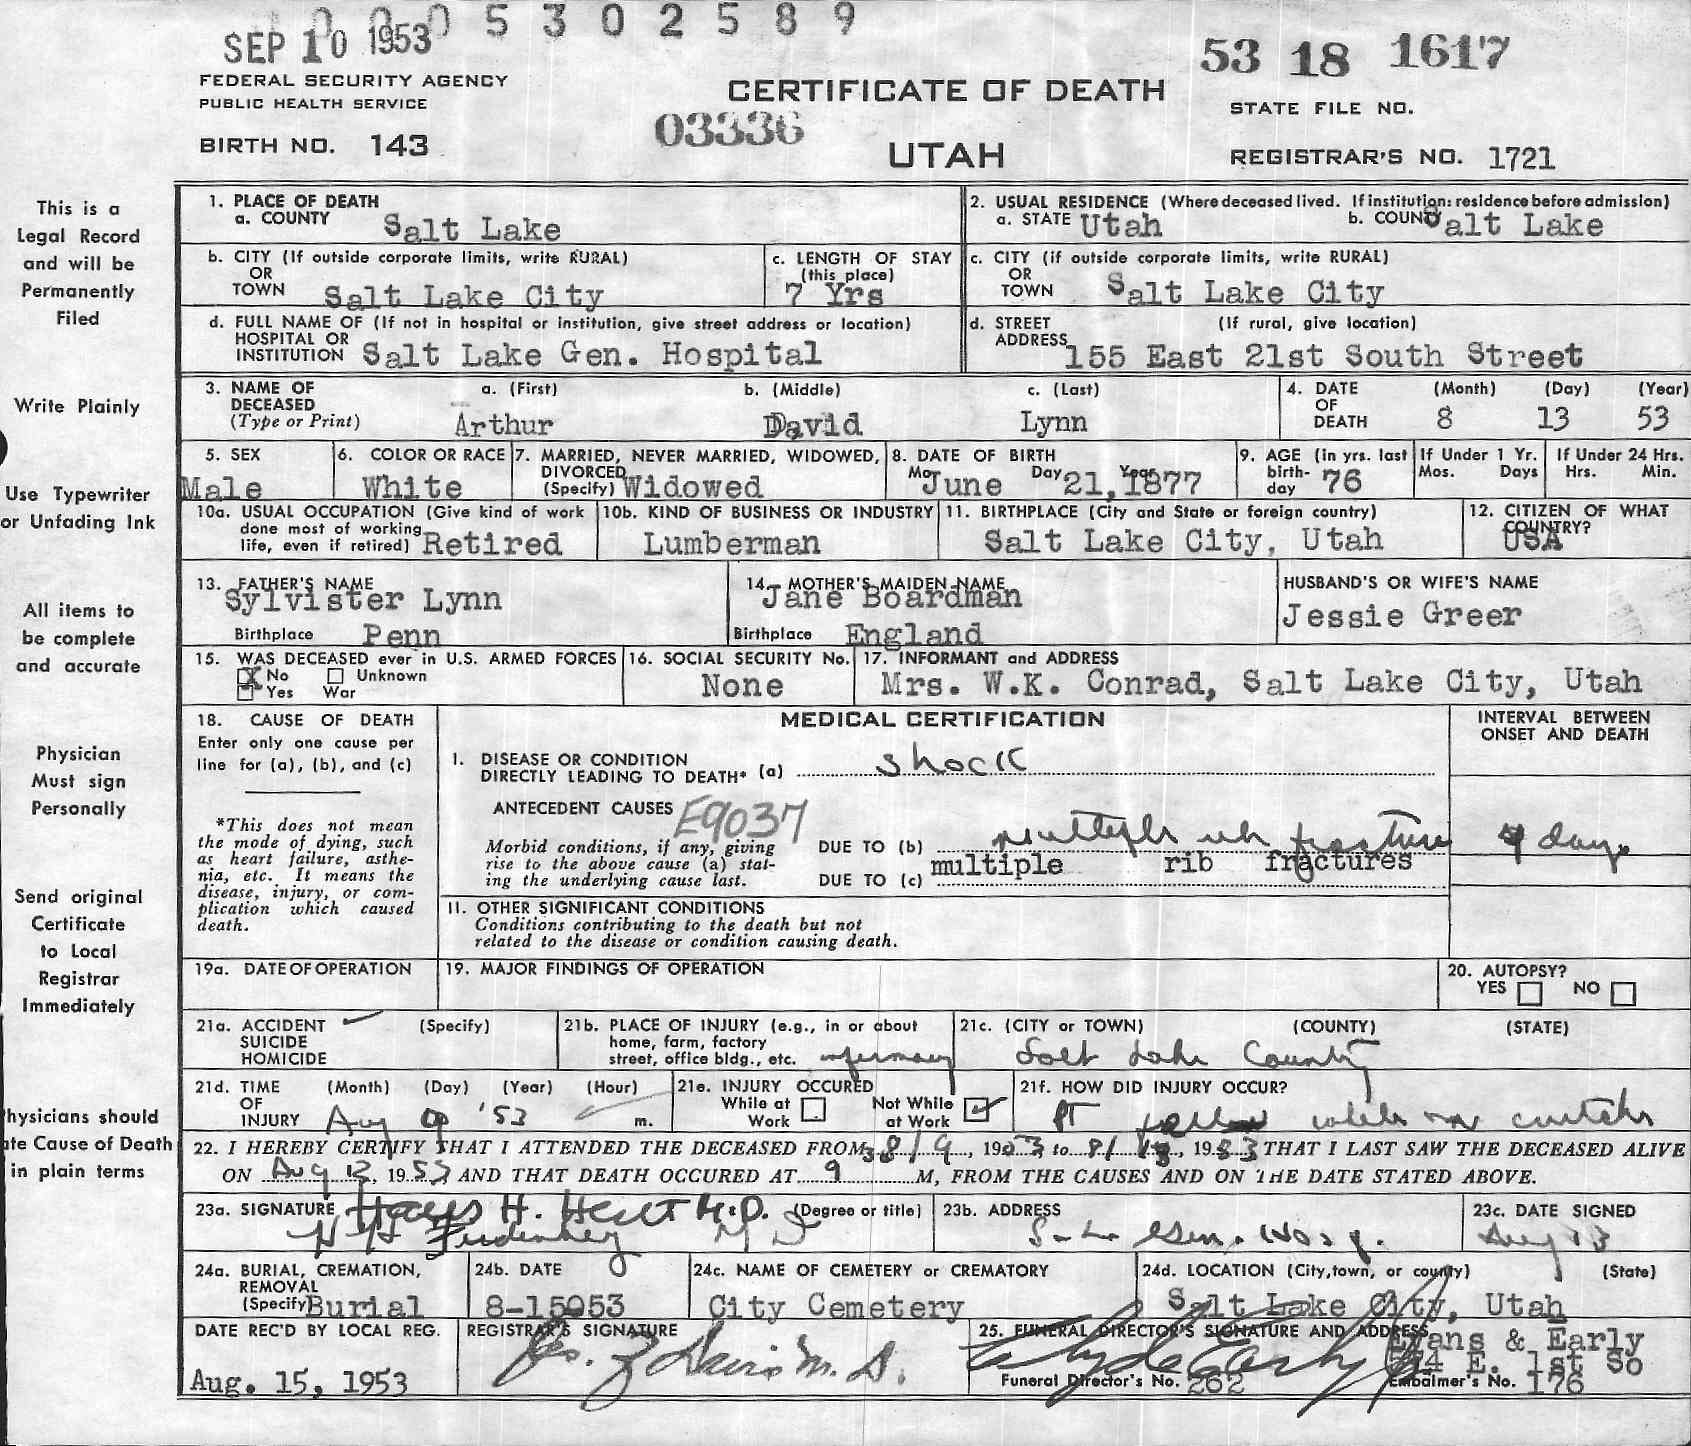 0 0 0 5 3 0 2 5 8 9
SEP 10 1953
53 18 1617
FEDERAL SECURITY AGENCY
PUBLIC HEALTH SERVICE
CERTIFICATE OF DEATH
STATE FILE NO.
03336
BIRTH NO. 143
UTAH
REGISTRAR'S NO. 1721
This is a
Legal Record
and will be
Permanently
Filed
Write Plainly
Use Typewriter
or Unfading Ink
All items to
be complete
and accurate
Physician
Must sign
Personally
Send original
Certificate
to Local
Registrar
Immediately
hysicians should
te Cause of Death
in plain terms
1. PLACE OF DEATH
a. COUNTY Salt Lake
2. USUAL RESIDENCE (Where deceased lived. If institution: residence before admission)
a. STATE Utah b. COUN Salt Lake
b. CITY (If outside corporate limits, write RURAL)
OR
TOWN Salt Lake City
c. LENGTH OF STAY
(this place)
7 Yrs
c. CITY (if outside corporate limits, write RURAL)
OR
TOWN Salt Lake City
d. FULL NAME OF (If not in hospital or institution, give street address or location)
HOSPITAL OR
INSTITUTION Salt Lake Gen. Hospital
d. STREET (If rural, give location)
ADDRESS 155 East 21st South Street
3. NAME OF a. (First) b. (Middle) c. (Last)
DECEASED
(Type or Print) Arthur David Lynn
4. DATE (Month) (Day) (Year)
OF
DEATH 8 13 53
5. SEX
Male
6. COLOR OR RACE
White
7. MARRIED, NEVER MARRIED, WIDOWED,
DIVORCED
(Specify) Widowed
8. DATE OF BIRTH
Mo. Day Year
June 21, 1877
9. AGE (in yrs. last
birth-
day 76
If Under 1 Yr.
Mos. Days
If Under 24 Hrs.
Hrs. Min.
10a. USUAL OCCUPATION (Give kind of work
done most of working
life, even if retired) Retired
10b. KIND OF BUSINESS OR INDUSTRY
Lumberman
11. BIRTHPLACE (City and State or foreign country)
Salt Lake City, Utah
12. CITIZEN OF WHAT
COUNTRY?
USA
13. FATHER'S NAME
Sylvister Lynn
Birthplace Penn
14. MOTHER'S MAIDEN NAME
Jane Boardman
Birthplace England
HUSBAND'S OR WIFE'S NAME
Jessie Greer
15. WAS DECEASED ever in U.S. ARMED FORCES
X No Unknown
Yes War
16. SOCIAL SECURITY No.
None
17. INFORMANT and ADDRESS
Mrs. W.K. Conrad, Salt Lake City, Utah
18. CAUSE OF DEATH
Enter only one cause per
line for (a), (b), and (c)
*This does not mean
the mode of dying, such
as heart failure, asthe-
nia, etc. It means the
disease, injury, or com-
plication which caused
death.
MEDICAL CERTIFICATION
INTERVAL BETWEEN
ONSET AND DEATH
1. DISEASE OR CONDITION
DIRECTLY LEADING TO DEATH* (a) shock
ANTECEDENT CAUSES E9037
Morbid conditions, if any, giving
rise to the above cause (a) stat-
ing the underlying cause last.
DUE TO (b) multiple rib fracture 4 days
multiple rib fractures
DUE TO (c)
11. OTHER SIGNIFICANT CONDITIONS
Conditions contributing to the death but not
related to the disease or condition causing death.
19a. DATE OF OPERATION
19. MAJOR FINDINGS OF OPERATION
20. AUTOPSY?
YES NO
21a. ACCIDENT (Specify)
SUICIDE
HOMICIDE
21b. PLACE OF INJURY (e.g., in or about
home, farm, factory
street, office bldg., etc. infirmary
21c. (CITY or TOWN) (COUNTY) (STATE)
Salt Lake County
21d. TIME (Month) (Day) (Year) (Hour)
OF
INJURY Aug 9 '53 m.
21e. INJURY OCCURED
While at Not While
Work at Work
21f. HOW DID INJURY OCCUR?
PT while on crutches
22. I HEREBY CERTIFY THAT I ATTENDED THE DECEASED FROM 8/9, 1953 to 8/13, 1953 THAT I LAST SAW THE DECEASED ALIVE
ON Aug 12, 1953 AND THAT DEATH OCCURED AT 9 M, FROM THE CAUSES AND ON THE DATE STATED ABOVE.
23a. SIGNATURE H. M.D. (Degree or title)
M D
23b. ADDRESS
S. L. Gen. Hosp.
23c. DATE SIGNED
Aug 13
24a. BURIAL, CREMATION,
REMOVAL
(Specify) Burial
24b. DATE
8-15053
24c. NAME OF CEMETERY or CREMATORY
City Cemetery
24d. LOCATION (City, town, or county) (State)
Salt Lake City, Utah
DATE REC'D BY LOCAL REG.
Aug. 15, 1953
REGISTRAR'S SIGNATURE
Davis M. D.
25. FUNERAL DIRECTOR'S SIGNATURE AND ADDRESS
Clyde Early
Evans & Early
574 E. 1st So
Funeral Director's No. 262
Embalmer's No. 176